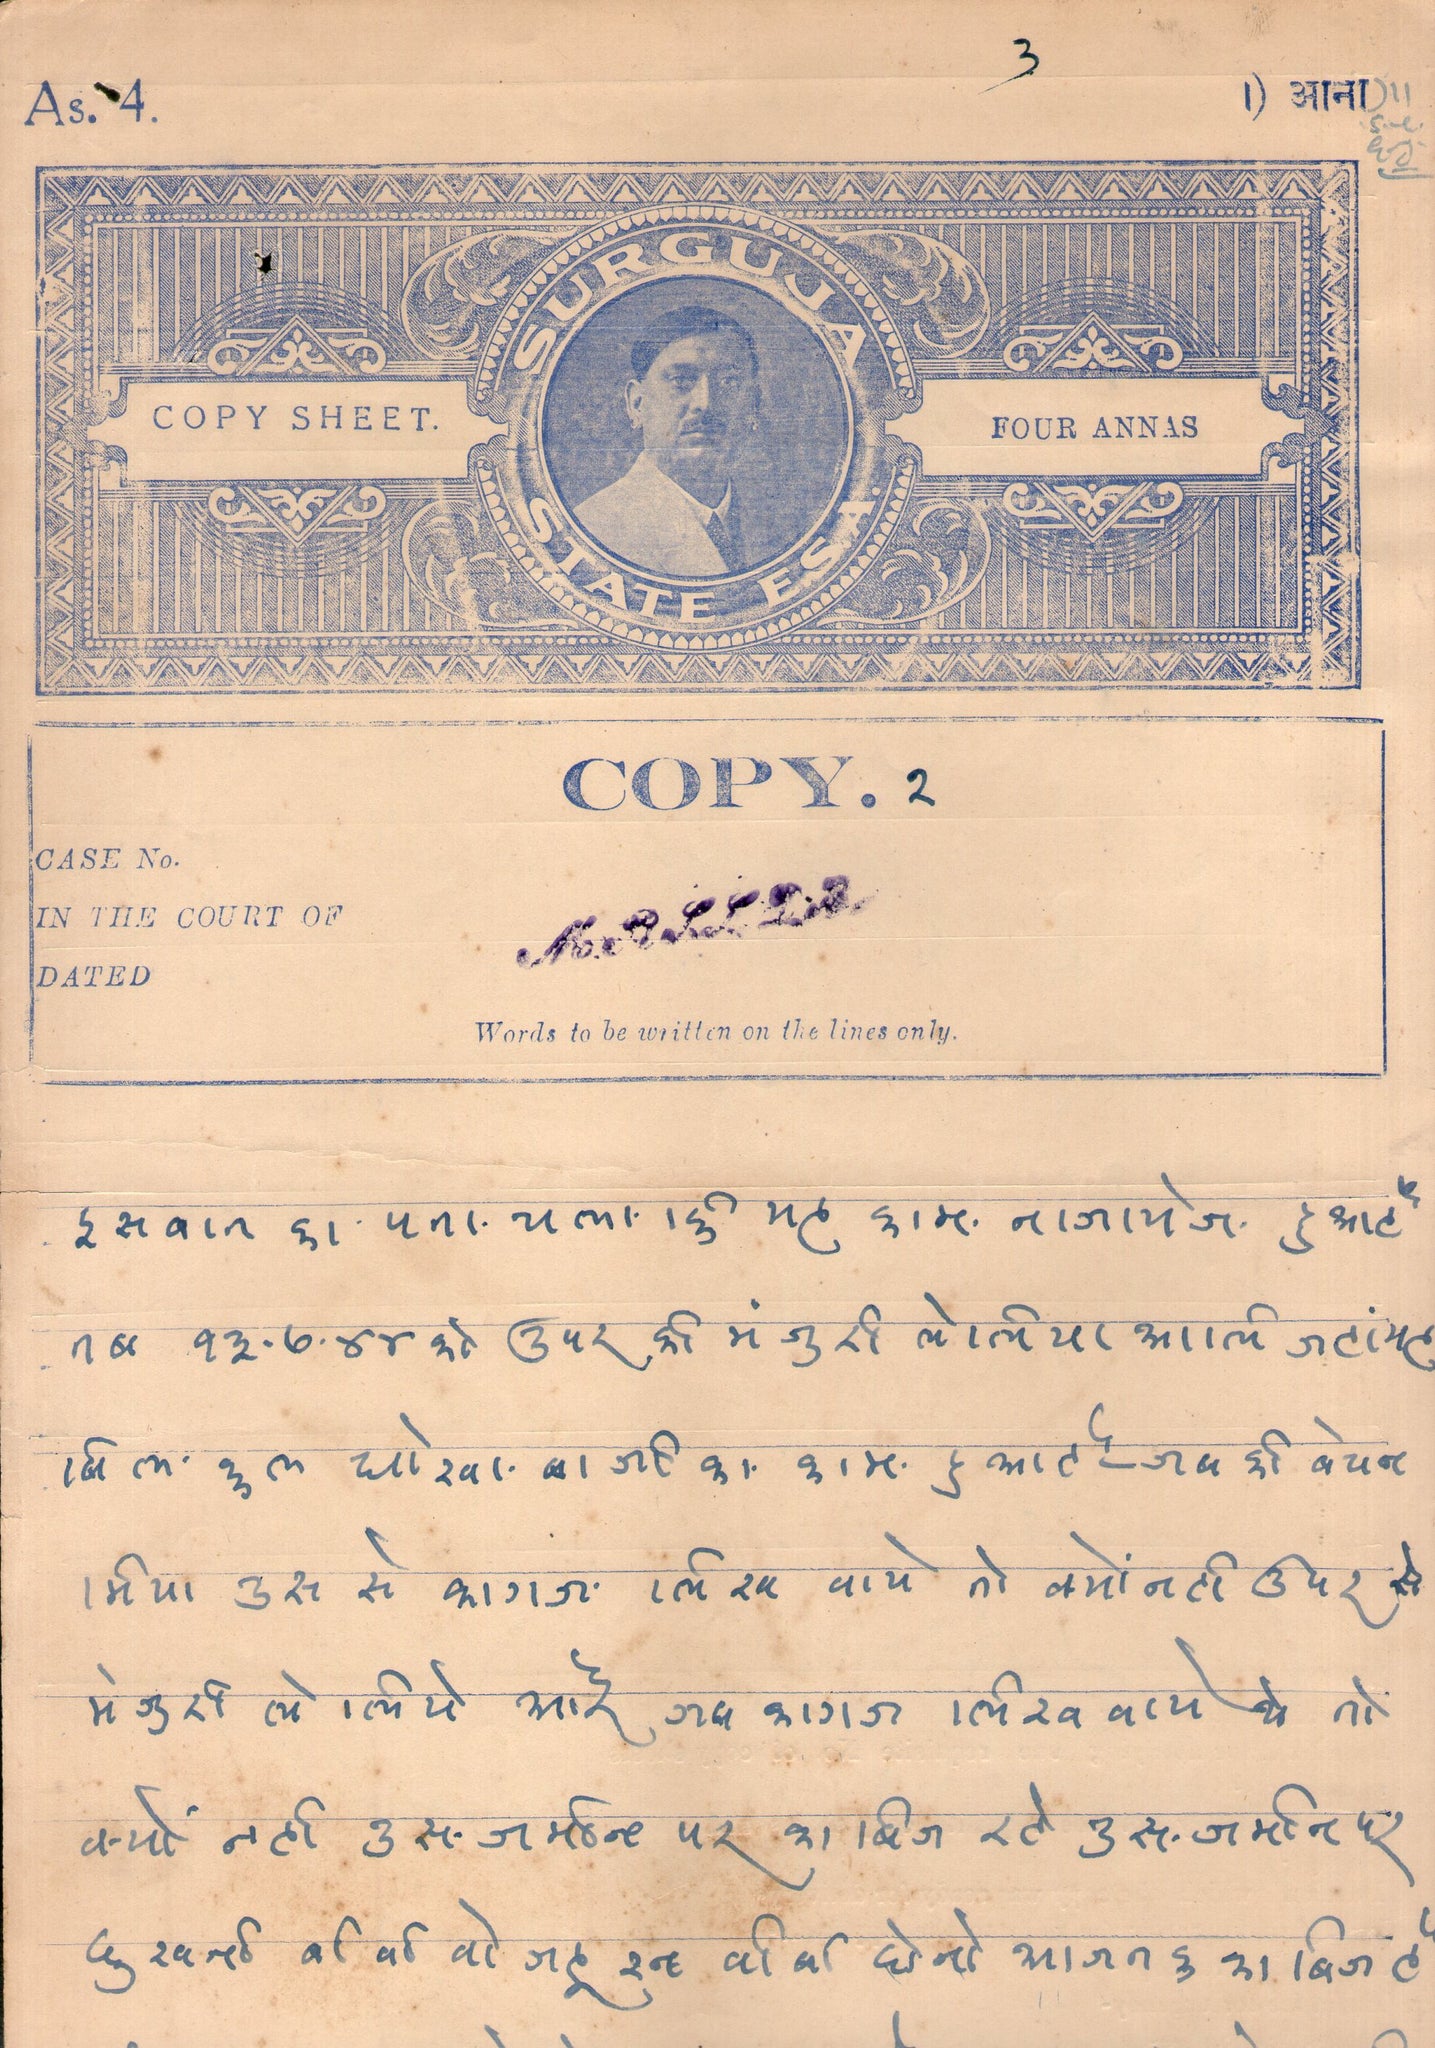 3
As. 4.
1) आना
SURGUJA
COPY SHEET.
FOUR ANNAS
STATE ESA.
COPY. 2
CASE No.
IN THE COURT OF
DATED
Words to be written on the lines only.
इस बात का पता चला कि यह काम नाजायेज हुआ है
तब १३.७.४४ को उपर की मंजुरी ले लिया
बिल कुल धोखा बाजी का काम हुआ है जब की बेचन
मिया उस से कागज लिख वाये तो क्यों नही उपर से
मंजुरी ले लिये जब कागज लिख वाये थे तो
क्यों नही उस जमीन पर काबिज रहे उस जमीन पर
बीबी वो बीबी दोनो आज तक काबिज है